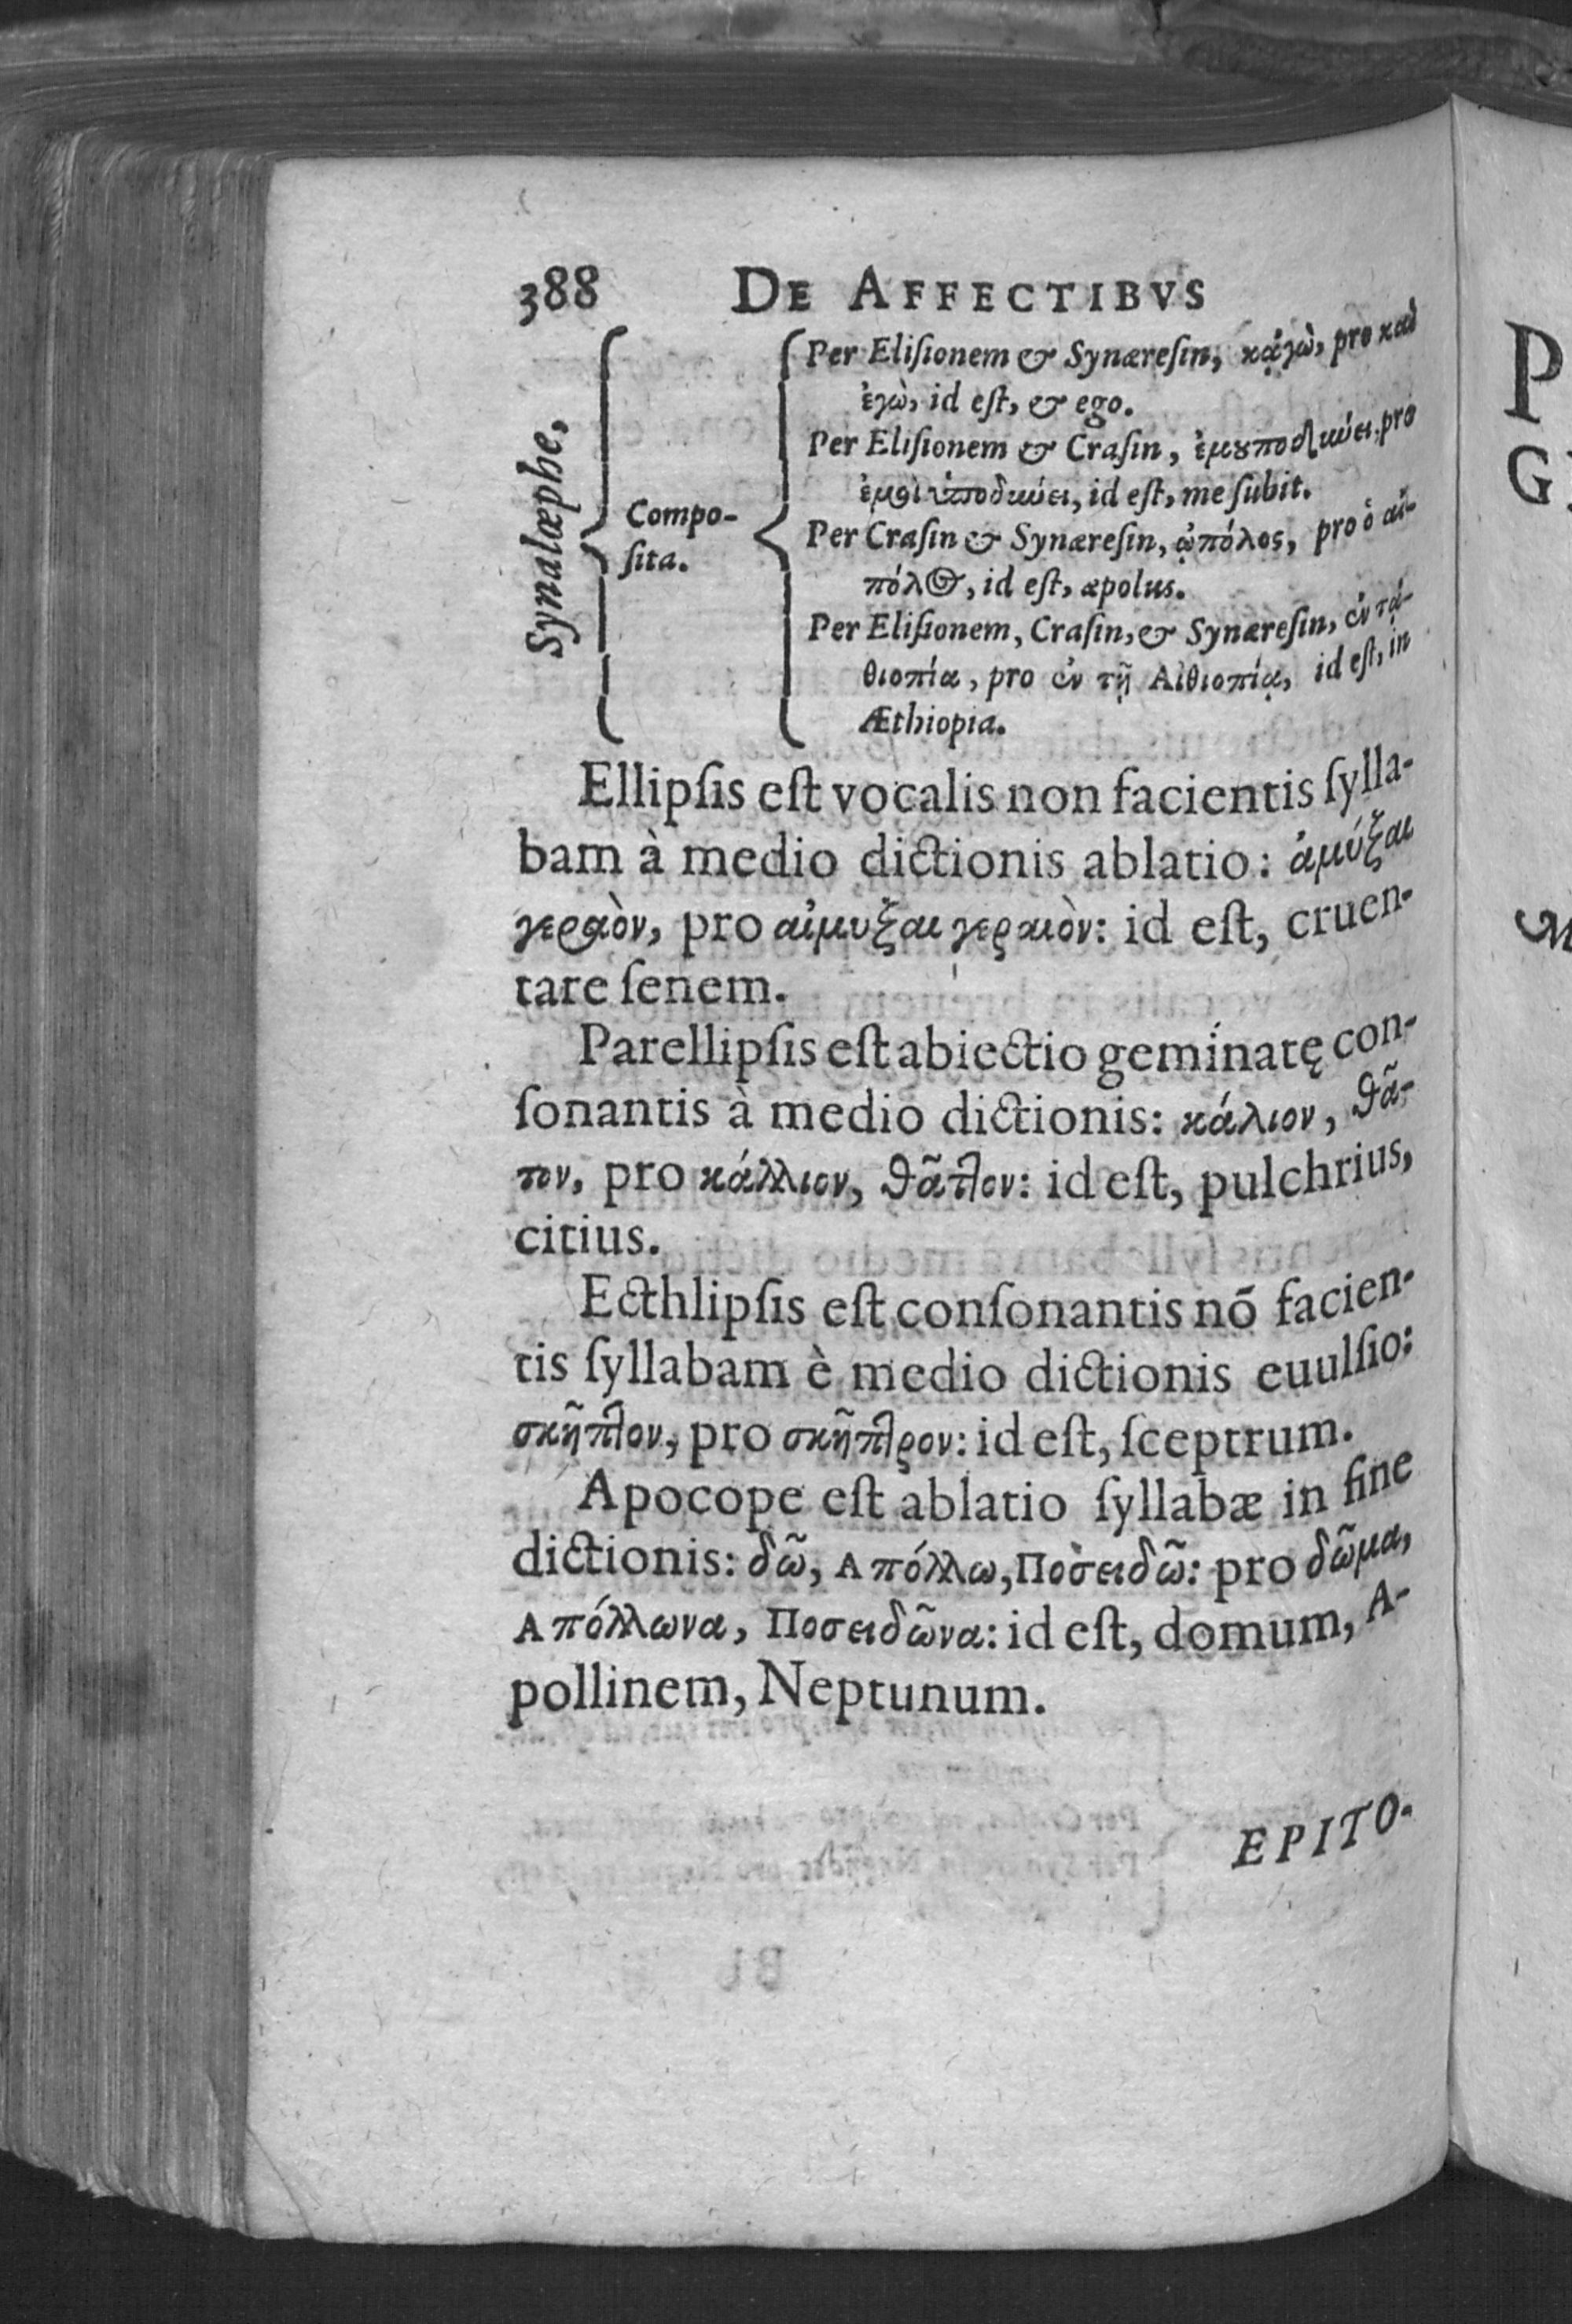 388 DE AFFECTIBVS
Synalæphe,
Compo-
ſita.
Per Eliſionem & Synæreſin, κᾀγὼ, pro καὶ
ἐγὼ, id eſt, & ego.
Per Eliſionem & Craſin, pro
id eſt, me ſubit.
Per Craſin & Synæreſin, ᾠπόλος, pro ὁ αἰ-
πόλος, id eſt, æpolus.
Per Eliſionem, Craſin, & Synæreſin, ἐν τᾀ-
θιοπία, pro ἐν τῇ Αἰθιοπίᾳ, id eſt, in
Æthiopia.
Ellipſis eſt vocalis non facientis ſylla-
bam à medio dictionis ablatio: ἀμύξαι
γεραὸν, pro αἰμυξαι γεραιὸν: id eſt, cruen-
tare ſenem.
Parellipſis eſt abiectio geminatę con-
ſonantis à medio dictionis: κάλιον, θᾶ-
τον, pro κάλλιον, θᾶττον: id eſt, pulchrius,
citius.
Ecthlipſis eſt conſonantis nō facien-
tis ſyllabam è medio dictionis euulſio:
σκῆπτον, pro σκῆπτρον: id eſt, ſceptrum.
Apocope eſt ablatio ſyllabæ in fine
dictionis: δῶ, Απόλλω, Ποσειδῶ: pro δῶμα,
Απόλλωνα, Ποσειδῶνα: id eſt, domum, A-
pollinem, Neptunum.
EPITO-